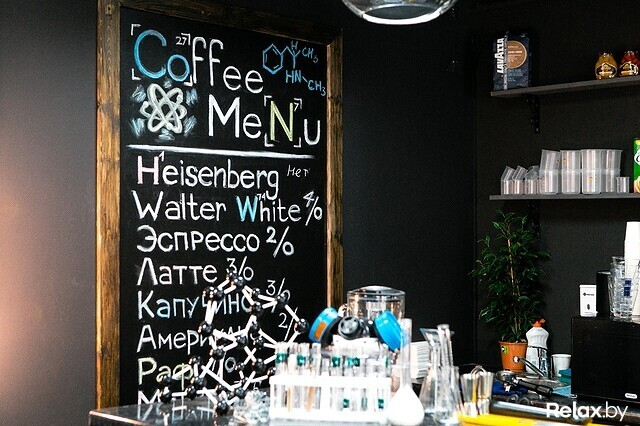 Coffee
27
H CH₃
HN CH₃
MeNu
Heisenberg нет
Walter White 4/0
74
Эспрессо 2/0
Латте 3/0
Капучино 3/0
Америка 2/
Раф
LAVAZZA
Relax.by